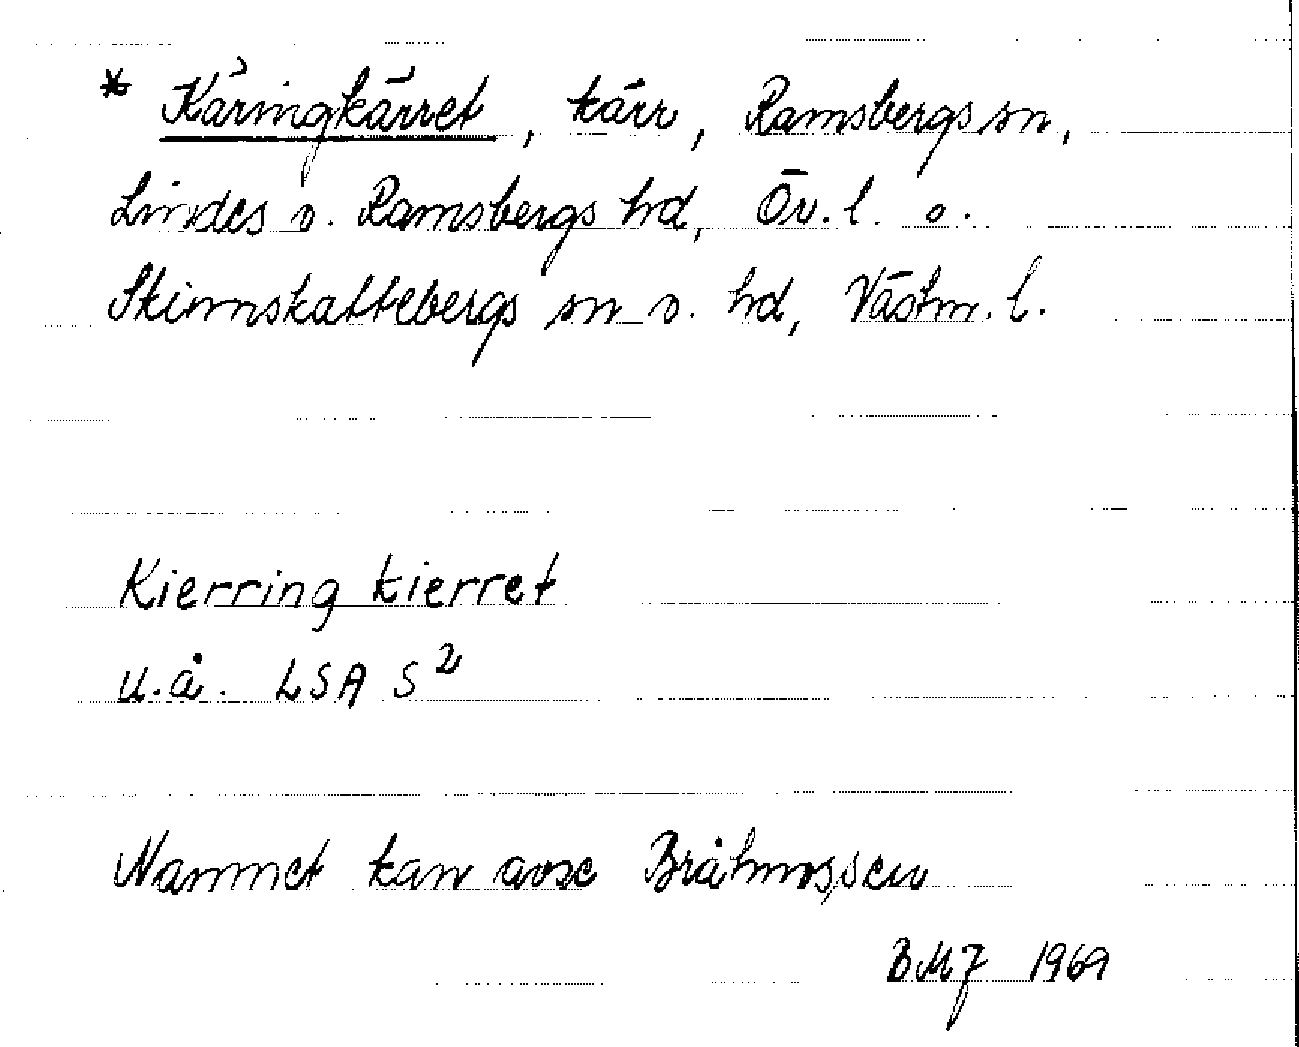 * Käringkärret, kärr, Ramsbergs sn,
Lindes o. Ramsbergs hd, Öv. l. o.
Skinnskattebergs sn o. hd, Västm. l.
Kierring kierret
u.å. LSA S²
Namnet kan avse Bråtmossen
BMJ 1969